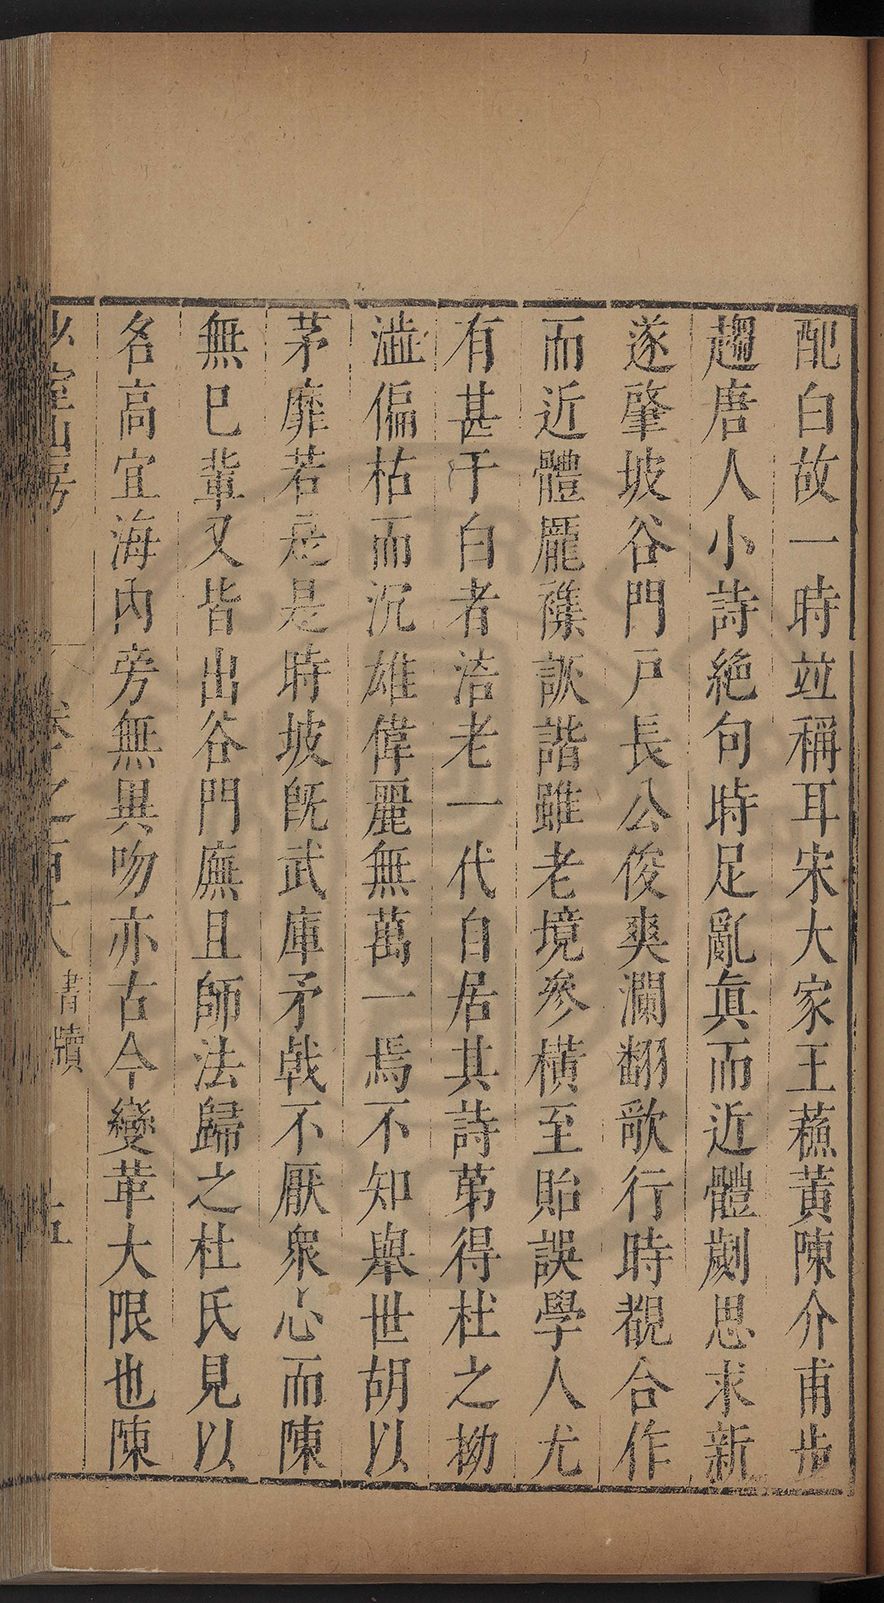 配白故一時竝稱耳宋大家王蘓黃陳介甫步
趨唐人小詩絶句時足亂眞而近體劌思求新
遂肇坡谷門戸長公俊爽瀾翻歌行時覩合作
而近體厖襍詼諧雖老境參橫至貽誤學人尤
有甚于白者浩老一代自居其詩苐得杜之拗
澁偏枯而沉雄偉麗無萬一焉不知舉世胡以
茅靡若是是時坡旣武庫矛戟不厭衆心而陳
無巳輩又皆出谷門廡且師法歸之杜氏見以
名高宜海內旁無異吻亦古今變革大限也陳
少室山房 卷之百十八 書牘 五